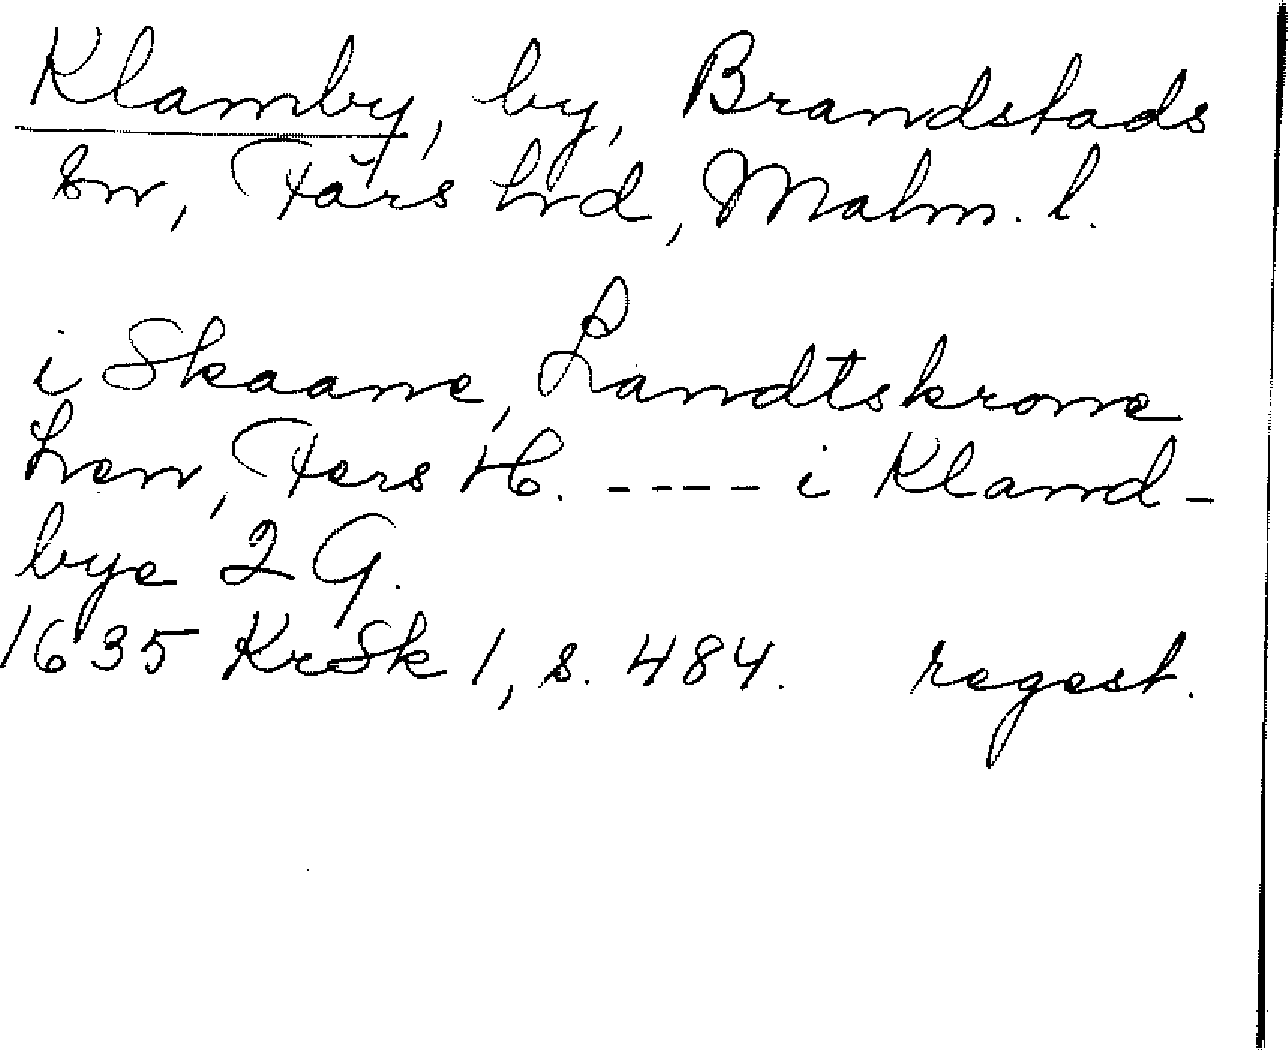 Klamby, by, Brandstads
sn, Färs hrd, Malm. l.
i Skaane, Landtskrone
Len, Fers H. ---- i Kland-
bye 2 G.
1635 KrSk 1, s. 484. regest.